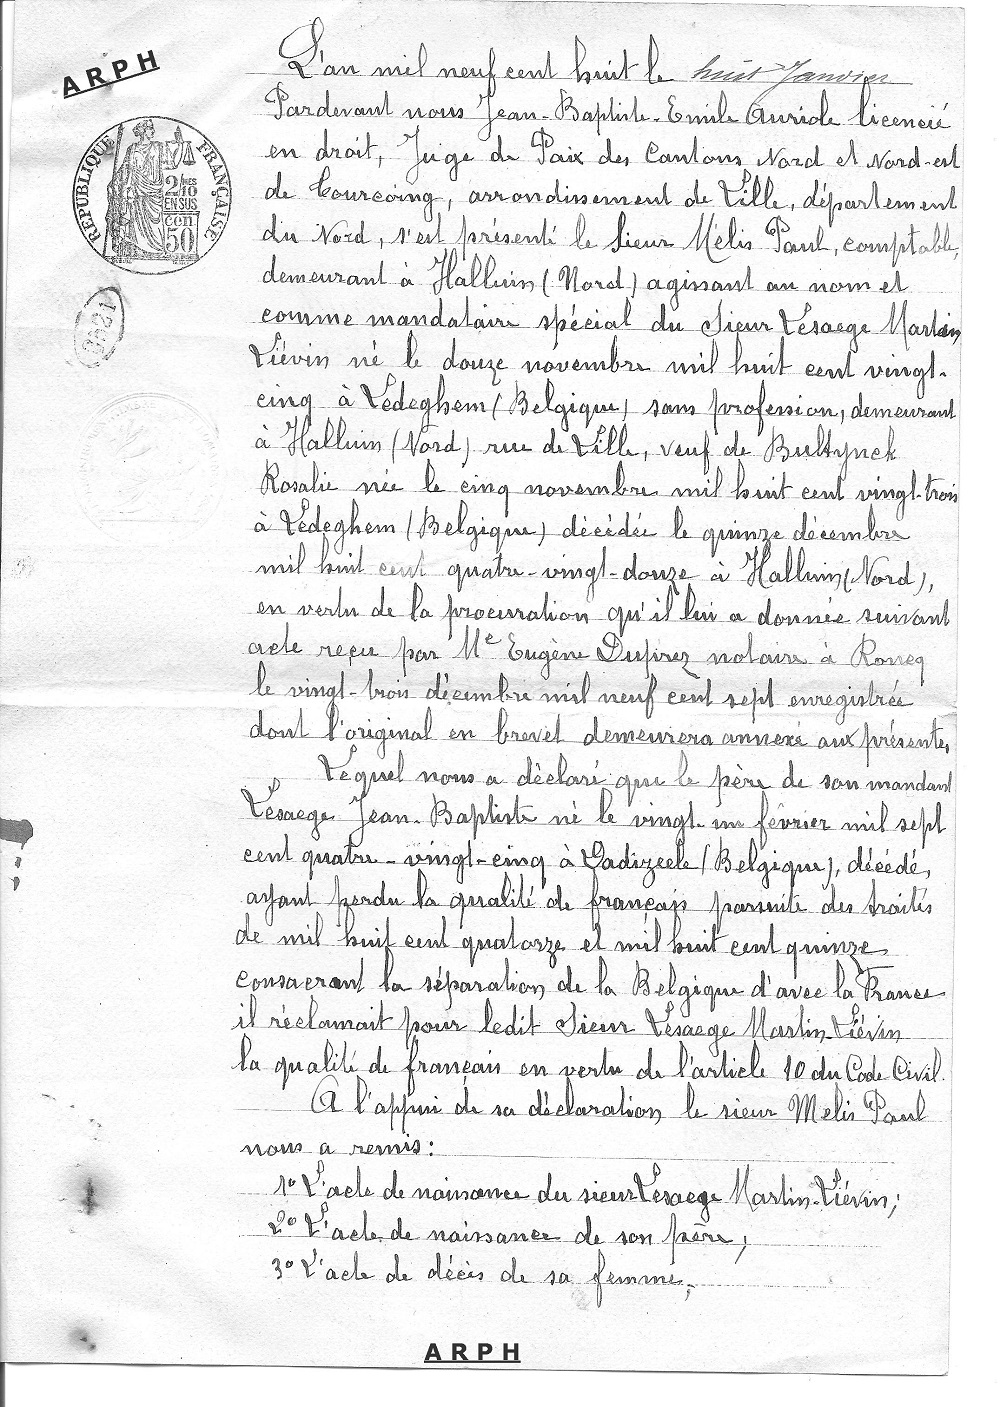 ARPH
RÉPUBLIQUE FRANÇAISE
2/10 EN SUS
50 cen
L'an mil neuf cent huit le huit Janvier
Pardevant nous Jean-Baptiste-Emile Auriole licencié
en droit, Juge de Paix des Cantons Nord et Nord-est
de Tourcoing, arrondissement de Lille, département
du Nord, s'est présenté le Sieur Mélis Paul, comptable,
demeurant à Halluin (Nord) agissant au nom et
comme mandataire spécial du Sieur Lesaege Martin
Liévin né le douze novembre mil huit cent vingt-
cinq à Ledeghem (Belgique) sans profession, demeurant
à Halluin (Nord) rue de Lille, veuf de Bultynck
Rosalie née le cinq novembre mil huit cent vingt-trois
à Ledeghem (Belgique) décédée le quinze décembre
mil huit cent quatre-vingt-douze à Halluin (Nord),
en vertu de la procuration qu'il lui a donnée suivant
acte reçu par Me Eugène Dupirez notaire à Roncq
le vingt-trois décembre mil neuf cent sept enregistrée
dont l'original en brevet demeurera annexé aux présentes
Lequel nous a déclaré que le père de son mandant
Lesaege Jean-Baptiste né le vingt-un février mil sept
cent quatre-vingt-cinq à Cadizeele (Belgique), décédé,
ayant perdu la qualité de français parsuite des traités
de mil huit cent quatorze et mil huit cent quinze
consacrant la séparation de la Belgique d'avec la France
il réclamait pour ledit Sieur Lesaege Martin-Liévin
la qualité de français en vertu de l'article 10 du Code Civil.
A l'appui de sa déclaration le sieur Melis Paul
nous a remis:
1° L'acte de naissance du sieur Lesaege Martin-Liévin;
2° L'acte de naissance de son père;
3° L'acte de décès de sa femme;
ARPH